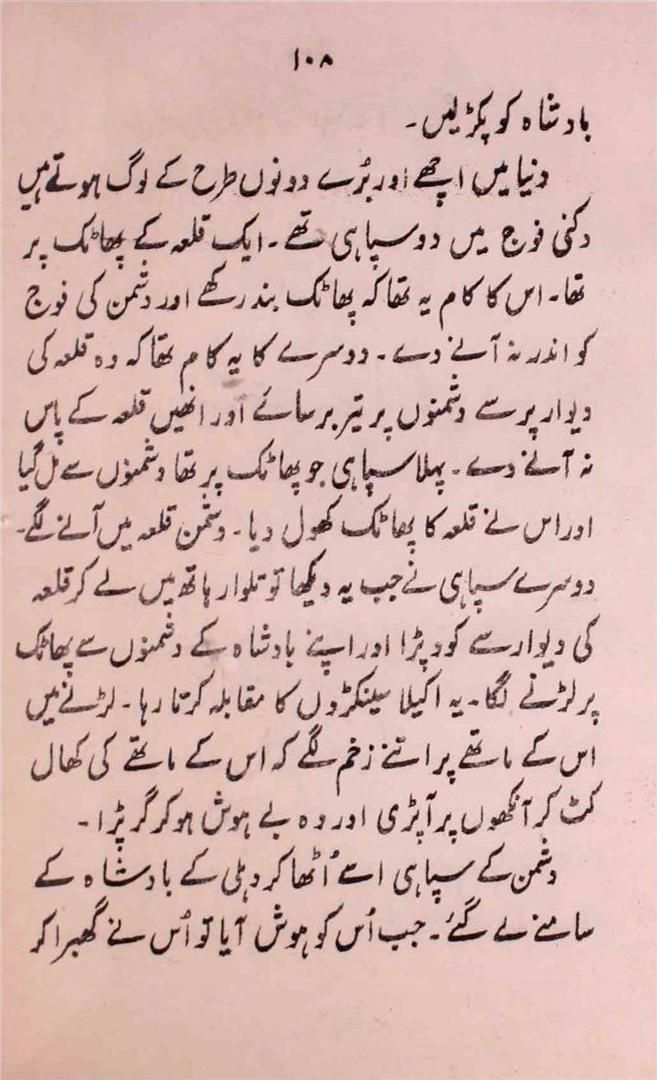 ۱۰۸
بادشاہ کو پکڑ لیں۔
دنیا میں اچھے اور بُرے دونوں طرح کے لوگ ہوتے ہیں
دکنی فوج میں دو سپاہی تھے۔ ایک قلعہ کے پھاٹک پر
تھا۔ اس کا کام یہ تھا کہ پھاٹک بند رکھے اور دشمن کی فوج
کو اندر نہ آنے دے۔ دوسرے کا یہ کام تھا کہ وہ قلعہ کی
دیوار پر سے دشمنوں پر تیر برسائے اور انھیں قلعہ کے پاس
نہ آنے دے۔ پہلا سپاہی جو پھاٹک پر تھا دشمنوں سے مل گیا
اور اس نے قلعہ کا پھاٹک کھول دیا۔ دشمن قلعہ میں آنے لگے۔
دوسرے سپاہی نے جب یہ دیکھا تو تلوار ہاتھ میں لے کر قلعہ
کی دیوار سے کود پڑا اور اپنے بادشاہ کے دشمنوں سے پھاٹک
پر لڑنے لگا۔ یہ اکیلا سینکڑوں کا مقابلہ کرتا رہا۔ لڑنے میں
اس کے ماتھے پر اتنے زخم لگے کہ اس کے ماتھے کی کھال
کٹ کر آنکھوں پر آپڑی اور وہ بے ہوش ہوکر گر پڑا۔
دشمن کے سپاہی اسے اُٹھا کر دہلی کے بادشاہ کے
سامنے لے گئے۔ جب اُس کو ہوش آیا تو اُس نے گھبرا کر